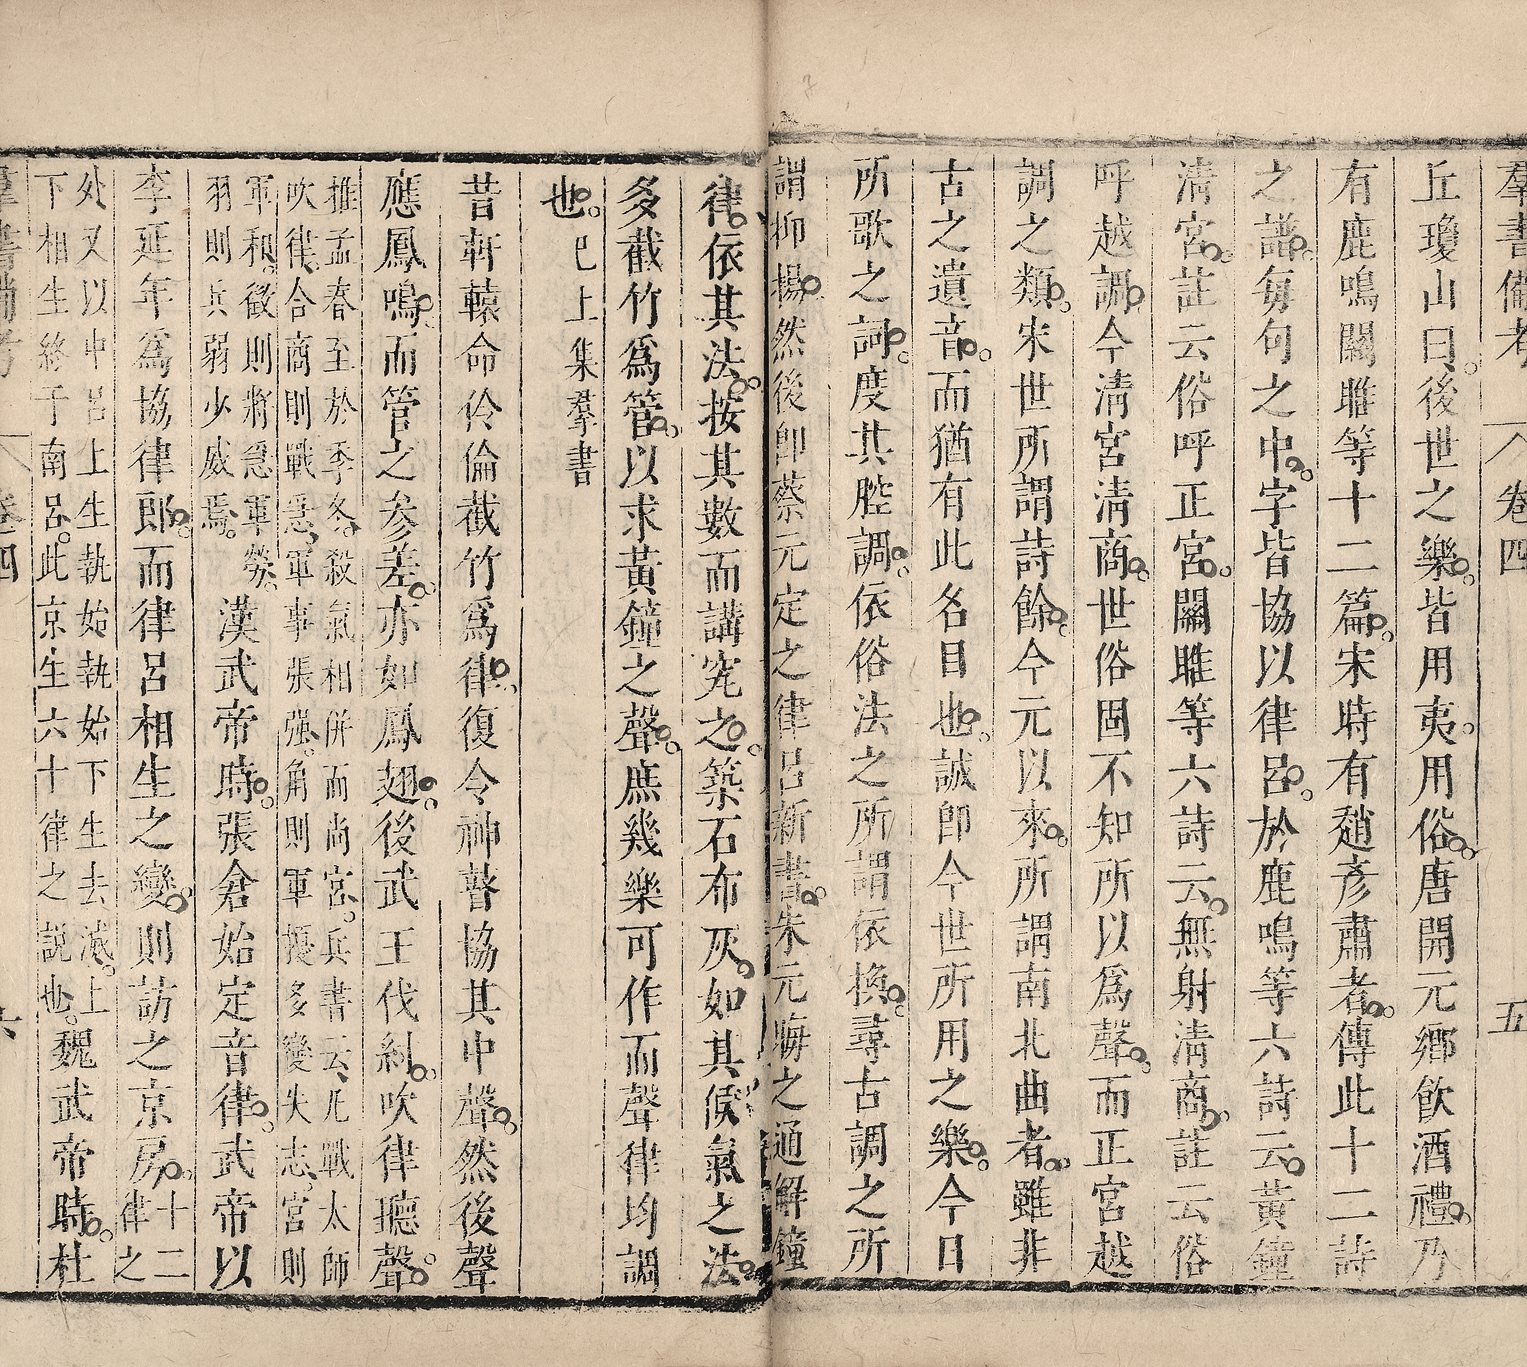 羣書備考 卷四 五
丘瓊山曰後世之樂皆用夷用俗唐開元鄉飲酒禮乃
有鹿鳴關雎等十二篇宋時有趙彥肅者傳此十二詩
之譜每句之中字皆協以律呂於鹿鳴等六詩云黃鐘
清宮註云俗呼正宮關雎等六詩云無射清商註云俗
呼越調今清宮清商世俗固不知所以爲聲而正宮越
調之類宋世所謂詩餘今元以來所謂南北曲者雖非
古之遺音而猶有此名目也誠卽今世所用之樂今日
所歌之詞度其腔調依俗法之所謂依換尋古調之所
謂抑揚然後卽蔡元定之律呂新書朱元晦之通解鐘
律依其法按其數而講究之築石布灰如其候氣之法
多截竹爲管以求黃鐘之聲庶幾樂可作而聲律均調
也已上集羣書
昔軒轅命伶倫截竹爲律復令神瞽協其中聲然後聲
應鳳鳴而管之參差亦如鳳翅後武王伐紂吹律聽聲
推孟春至於季冬殺氣相併而尚宮兵書云凡戰太師
吹律合商則戰急軍事張强角則軍擾多變失志宮則
軍和徵則將急軍勞
羽則兵弱少威焉
漢武帝時張倉始定音律武帝以
李延年爲協律郎而律呂相生之變則訪之京房十二
律之
处又以中呂上生執始執始下生去滅上
下相生終于南呂此京生六十律之說也
魏武帝時杜
羣書備考 卷四 六